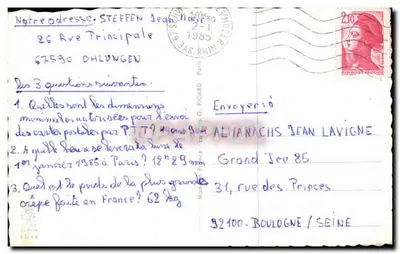 Notre adresse: STEFFEN Jean Marc
26 Rue Principale
67590 OHLUNGEN
Les 3 questions suivantes:
1. Quelles sont les dimensions
minimales autorisées pour l'envoi
des cartes postales par
2. A quelle heure se lèvera la lune le
1er janvier 1986 à Paris? 12h29mn
3. Quel est le poids de la plus grande
crêpe faite en France? 62 kg
1985
2,10
Envoyer à
ALMANACHS JEAN LAVIGNE
Grand Jeu 85
31, rue des Princes
92100 - BOULOGNE / SEINE